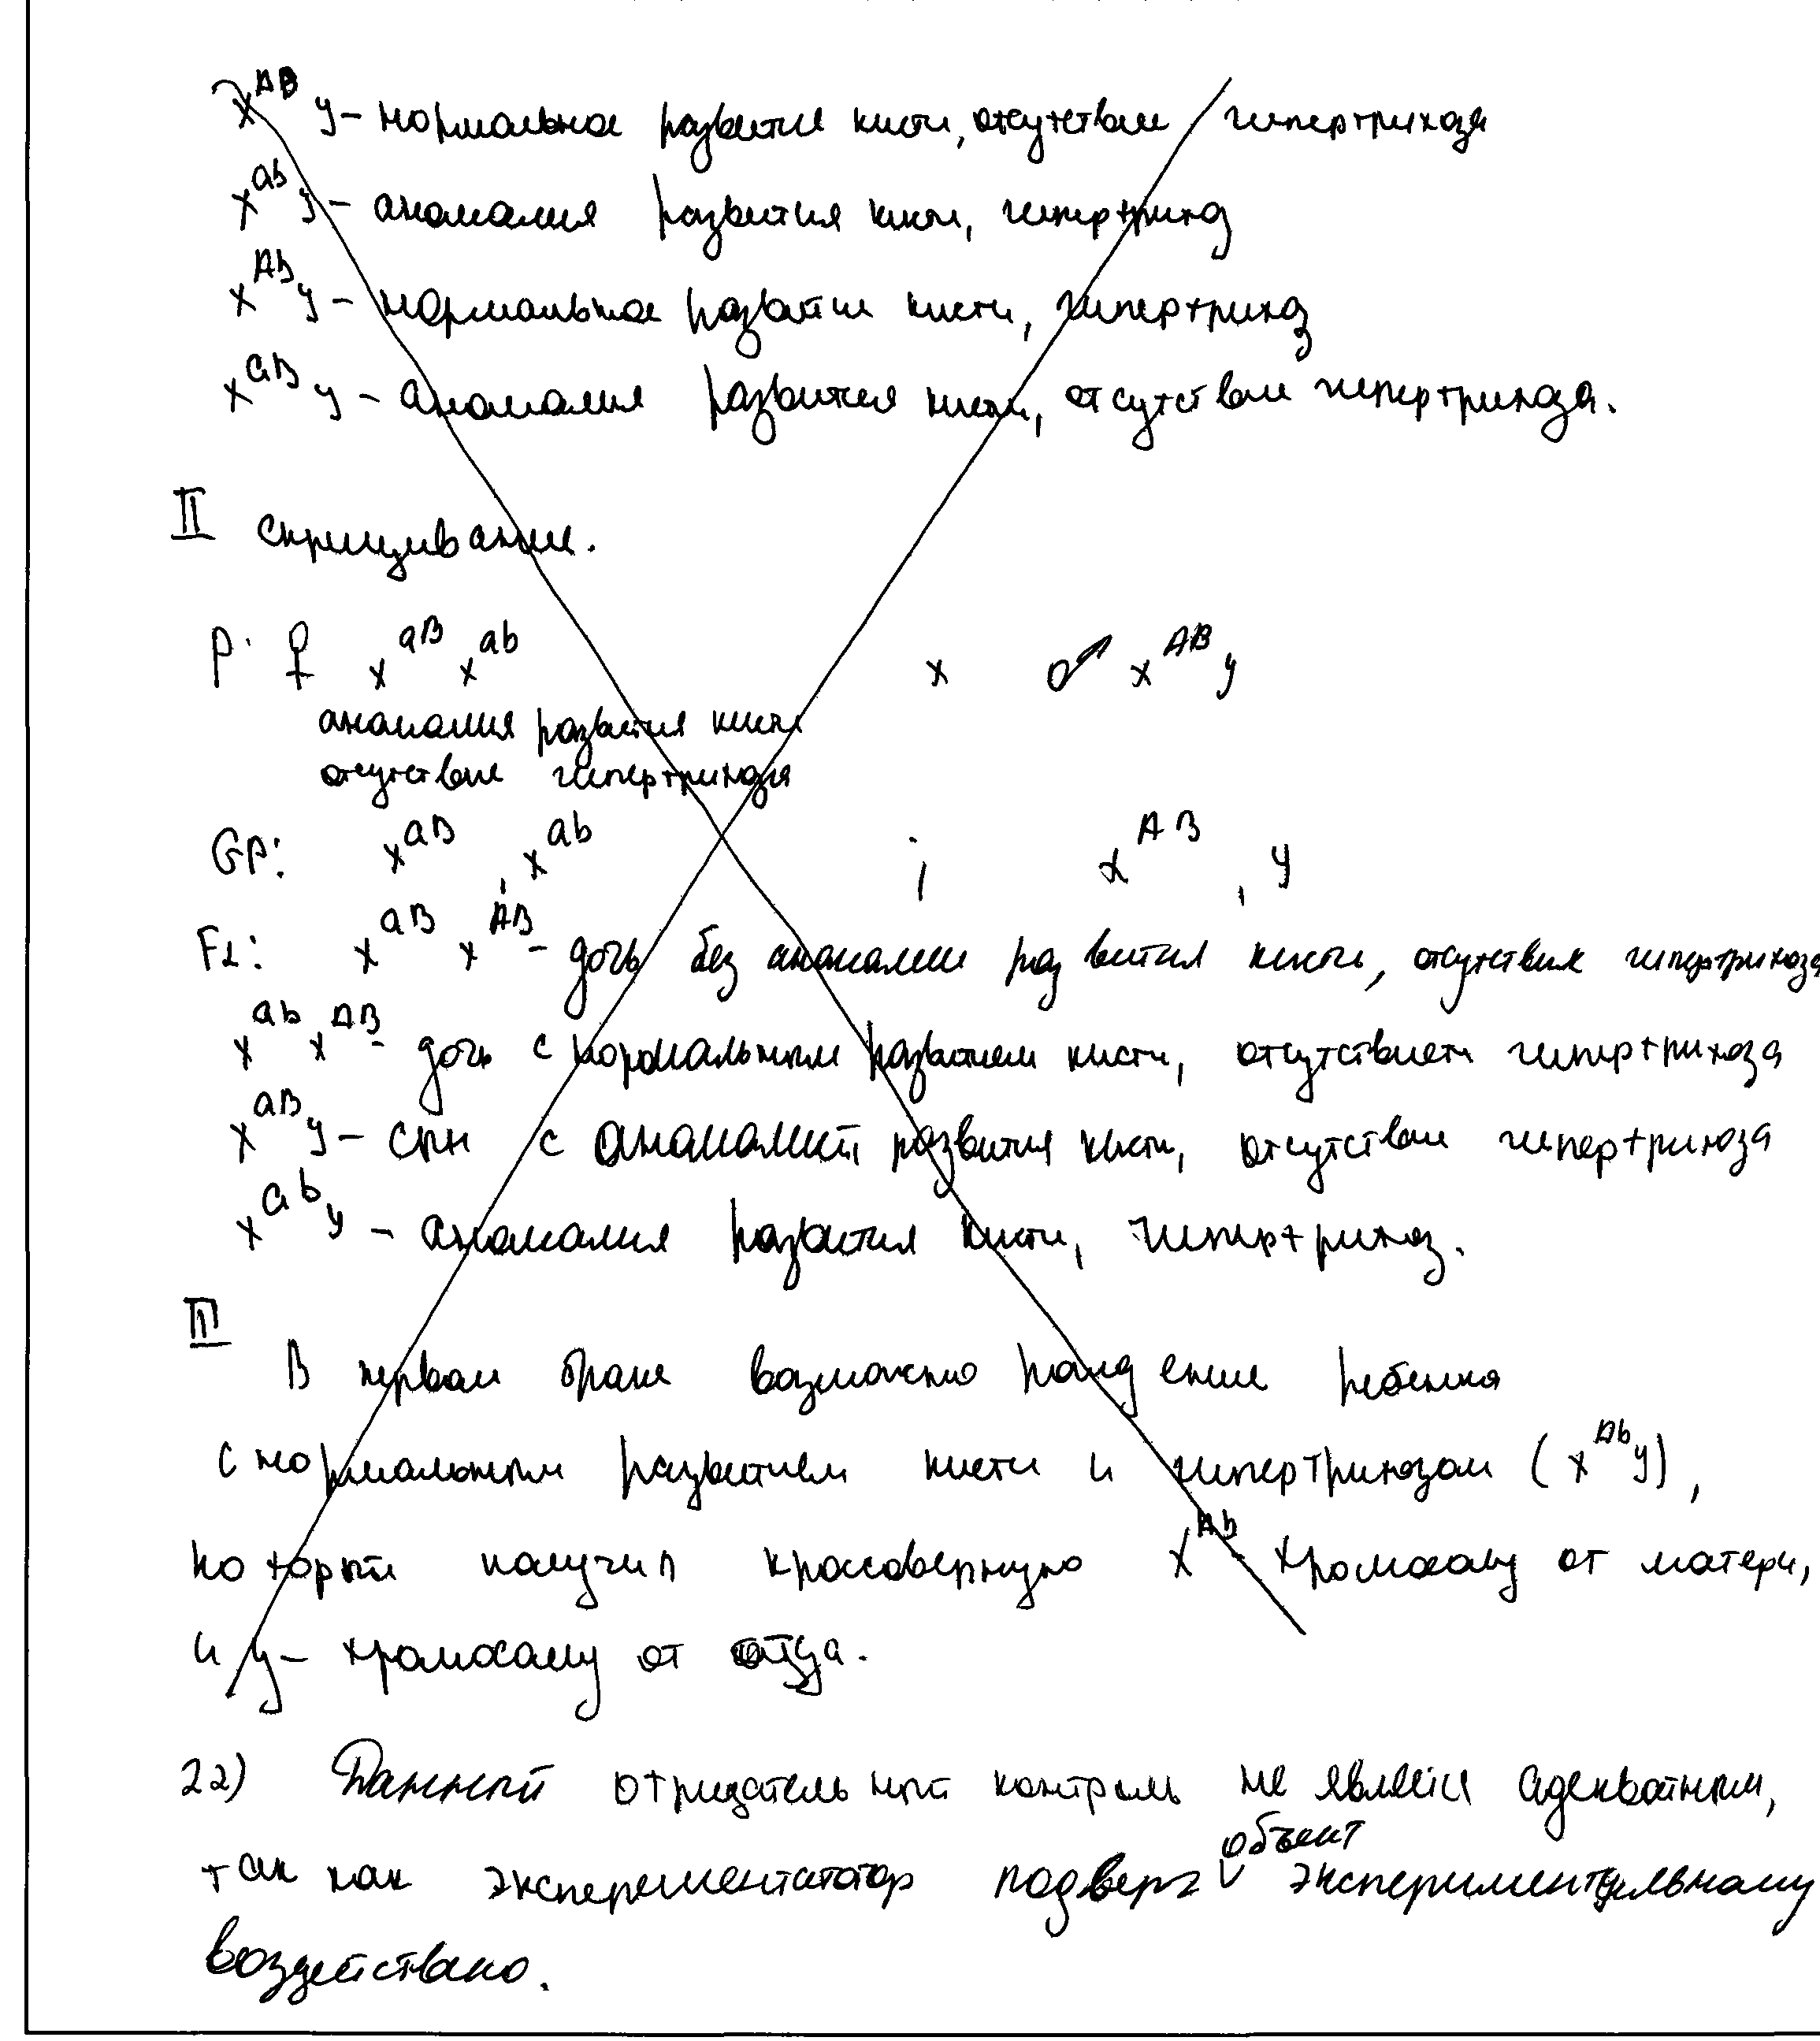 X^AB У – нормальное развитие кисти, отсутствие гипертрихоза
X^ab У – аномалия развития кисти, гипертрихоз
X^Ab У – нормальное развитие кисти, гипертрихоз
X^aB У – аномалия развития кисти, отсутствие гипертрихоза.
II скрещивание.
P: ♀ X^aB X^ab x ♂ X^AB У
аномалия развития кисти
отсутствие гипертрихоза
Gp: X^aB, X^ab ; X^AB, У
F2: X^aB X^AB – дочь без аномалии развития кисти, отсутствия гипертрихоза
X^ab X^AB – дочь с нормальным развитием кисти, отсутствием гипертрихоза
X^aB У – сын с аномалией развития кисти, отсутствием гипертрихоза
X^ab У – аномалия развития кисти, гипертрихоз.
III
В первом браке возможно рождение ребенка
с нормальным развитием кисти и гипертрихозом (X^Ab У),
который получил кроссоверную X^Ab – хромосому от матери,
и У – хромосому от отца.
22) Данный отрицательный контроль не является адекватным,
так как эксперементататор подверг объект экспериментальному
воздействию.